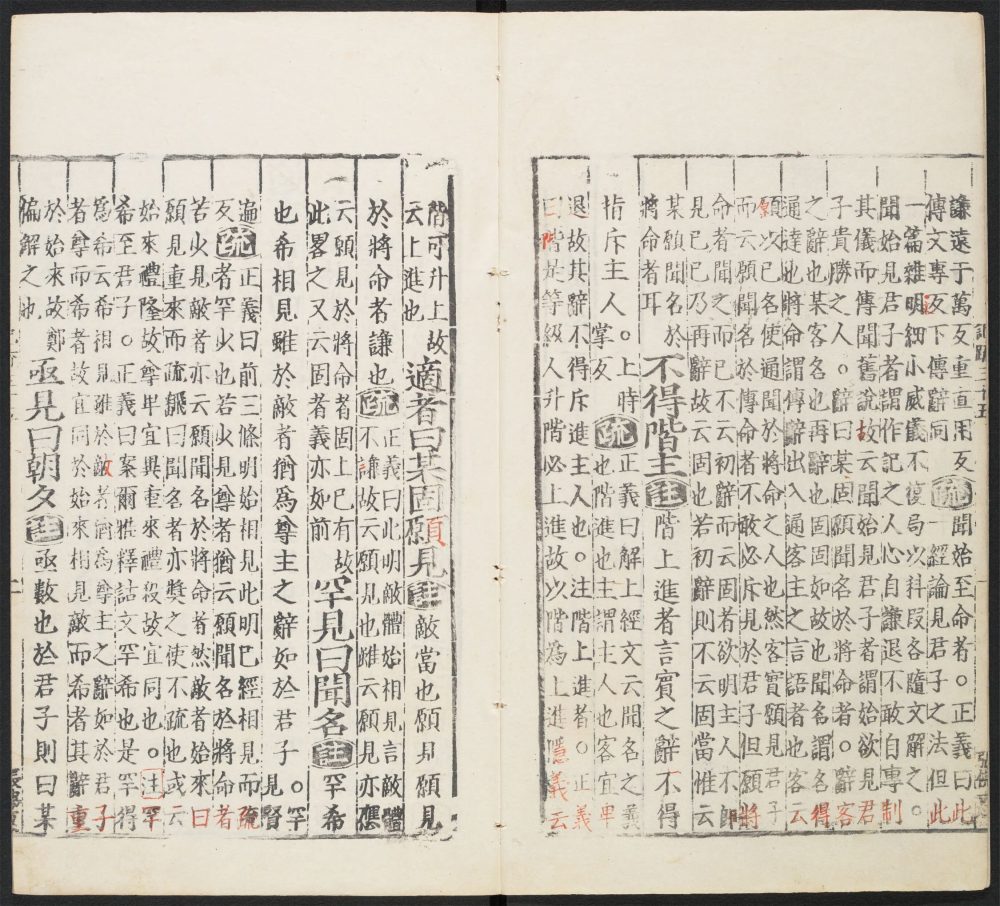 記疏三十五
謙遠于萬反重直用反
傳文專反下傳辭同
疏
聞始至命者。正義曰此
一經論見君子之法但此
一篇雜明細小威儀不復局以科段各隨文解之。
聞始見君子者謂作記之人心自謙退不敢自專制
其儀而傳聞舊說故云聞始見君子者謂始欲見君
子貴勝之人。辭曰某固願聞名於將命者。辭客
之辭也某客名也再辭也固固如故也聞名謂名得
通達也將命謂傳辭出入通客主之言語者也客云
願以己名使通聞於將命之人也然客實願見君子
而云願聞名於傳命者不敢必斥見於君子但願將
命者聞之而已不云初辭而云固者欲明主人不即
見己己乃再辭故云固也若初辭則不云固當惟云
某願聞名於
將命者耳
不得階主注階上進者言賓之辭不得
指斥主人。上時
掌反
疏
正義曰解上經文云聞名之義
也階進也主謂主人也客宜卑
退故其辭不得斥進主人也。注階上進者。正義
曰階是等級人升階必上進故以階為上進隱義云
階可升上故
云上進也
適者曰某固願見注敵當也願見願見
於將命者謙也疏
正義曰此明敵體始相見言敵體
不謙故云願見也雖云願見亦應
云願見於將命者固上已有故
此畧之又云固者義亦如前
罕見曰聞名注罕希
也希相見雖於敵者猶為尊主之辭如於君子。罕
見賢
遍
反
疏
正義曰前三條明始相見此明已經相見而疏
者罕少也若少見尊者猶云願聞名於將命者
若少見敵者亦云願聞名於將命者然敵者始來曰
願見重來而疏飜曰聞名者亦獎之使不疏也或云
始來禮隆故尊卑宜異重來禮殺故宜同也。注罕
希至君子。正義曰案爾雅釋詁文罕希也是罕得
為希云希相見雖於敵者猶為尊主之辭如於君子
者尊而希者故宜同於始來相見敵而希者其辭重
於始來故鄭
偏解之也
亟見曰朝夕注亟數也於君子則曰某